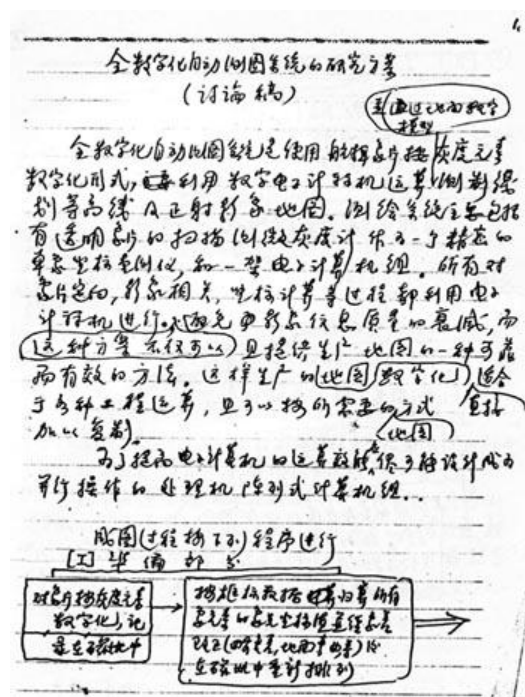 1.
全数字化自动测图系统的研究方案
(讨论稿)
是通过地面数字
模型
全数字化自动测图系统是使用航摄象片按灰度元素
数字化形式,主要利用数字电子计算机运算,测制线
划等高线及正射影象地图。测绘系统主要包括
有透明象片的扫描测微灰度计作为一个精密的
单象坐标量测仪,和一架电子计算机组。所有对
象片定向,影象相关,坐标计算等过程都利用电子
计算机进行。避免了影象信息质量的衰减,而
这种方案不仅可以且提供生产地图的一种可靠
而有效的方法。这样生产的地图(数字化)适合
于各种工程运算,且可以按所需要的方式 直接
加以复制。 地图
为了提高电子计算机的运算效能,供了解设计成为
并行操作的处理机阵列式计算机组..
成图过程按下列程序进行
[I] 准备部分
对象片按灰度元素
数字化,记
录在磁带中
按框标数据计算归算所有
象元素的象坐标
在磁带中重新排列